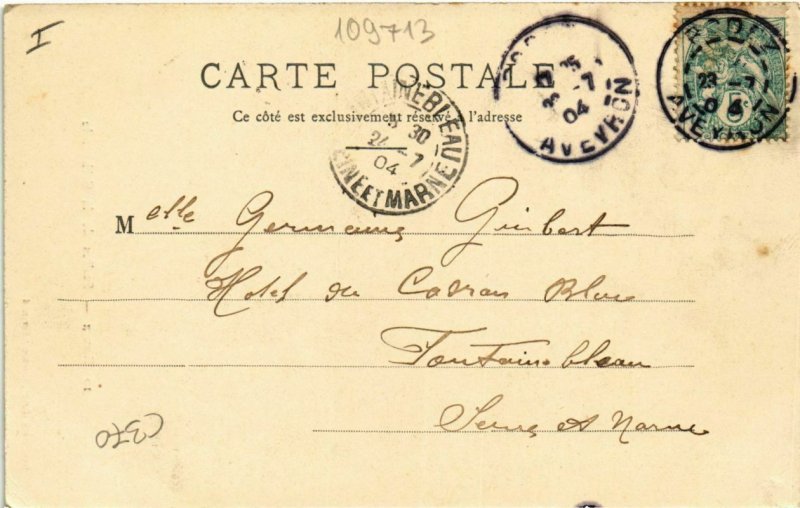 I
109713
CARTE POSTALE
Ce côté est exclusivement réservé à l'adresse
RODEZ
23 - 7
04
AVEYRON
25
- 7
04
AVEYRON
FONTAINEBLEAU
30
24 - 7
04
SEINE ET MARNE
5c
Melle Germaine Guibert
Hotel du Cadran Bleu
Fontainebleau
Seine et Marne